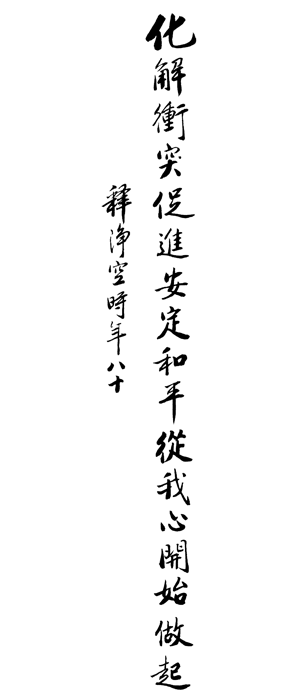 化解衝突促進安定和平從我心開始做起
釋淨空時年八十